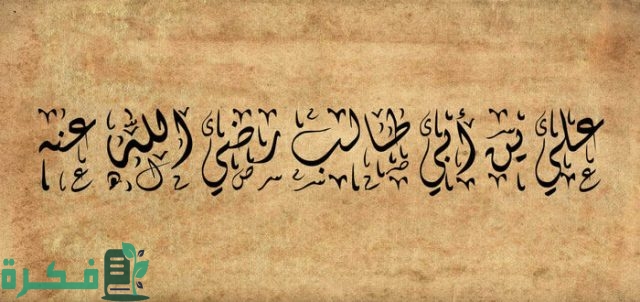 علي بن أبي طالب رضي الله عنه
فكرة